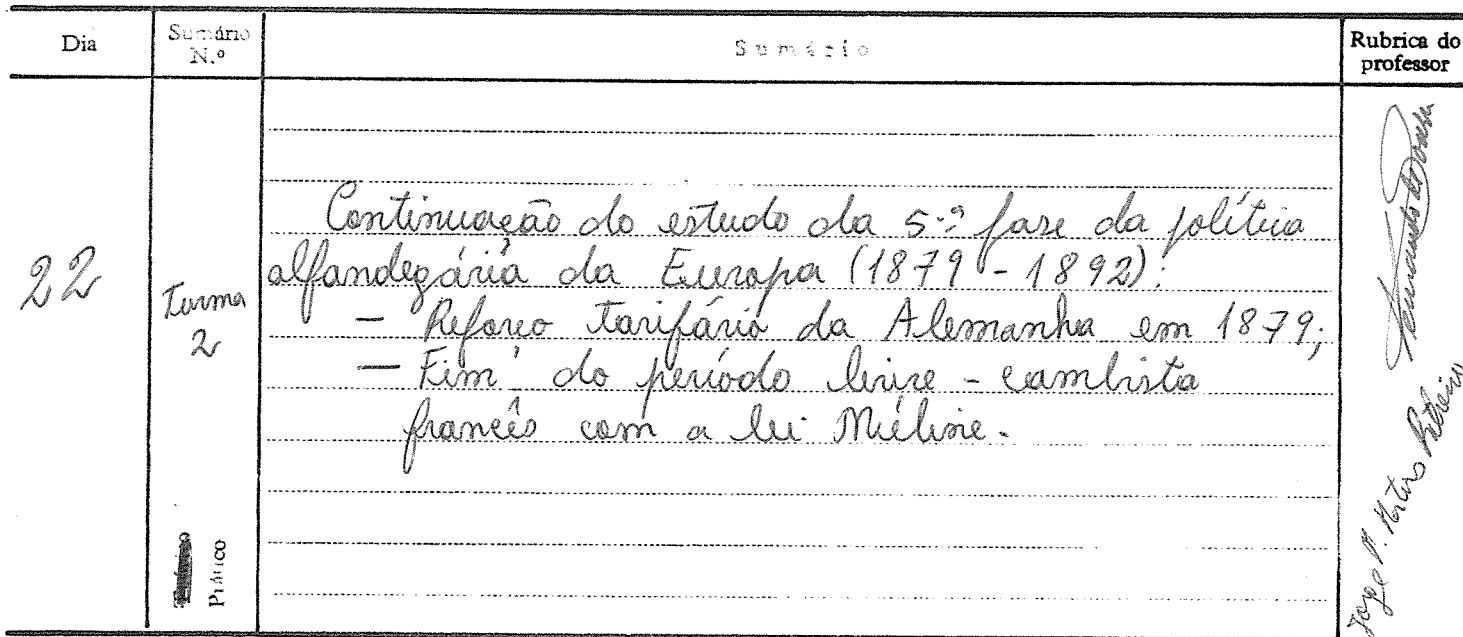 Dia
Sumário N.º
Sumário
Rubrica do professor
22
Turma 2
Continuação do estudo da 5.ª fase da política
alfandegária da Europa (1879 - 1892):
— Reforço tarifário da Alemanha em 1879;
— Fim do período livre-cambista
francês com a lei Méline.
Prático
Jorge